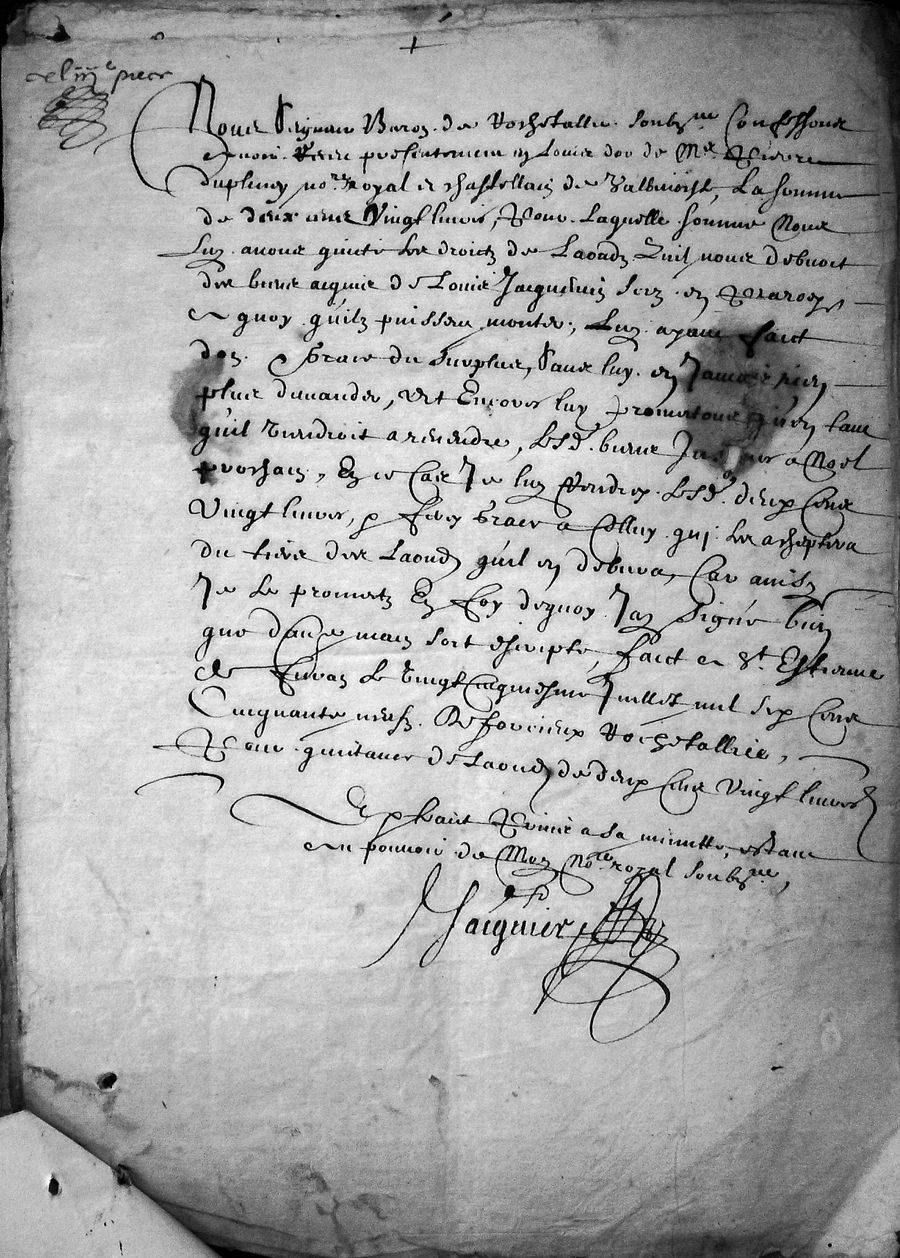 piece
Nous Seigneur Baron de Rochetallie soubz.ne Confessons
avoir Receu presentement en Louis dor de Me Pierre
dupluvy no.re Royal et chastellain de Valbenoiste, La somme
de deux cens Vingt livres, Pour Laquelle somme Nous
Luy avons quicté les droictz de Laoudz Quil nous debvoit
des biens acquis de Louis Jacquemin en
a quoy quilz puissent monter, Luy ayant faict
don Grace du surplus, Sans luy en Jamais rien
plus demander, Et Encores luy promettons qu'en cas
quil viendroit a revendre, Lesd. biens Jusques a Noel
prochain, En ce Cas Je luy Rendrey Lesd. deux Cens
Vingt livres, & ferey Grace a Celluy qui les acheptera
du tiers des Laoudz quil en debvra, Car ainsy
Je le prometz En foy dequoy Jay Signé bien
que d'autre main soit escripte, faict a St Estienne
de Furan Le Vingt cinquiesme Juillet mil six Cens
Cinquante neufz. Rochetallie,
Pour quitance de Laoudz de deux Cens Vingt livres
Extraict Prinse a sa minutte, estant
au pouvoir de Moy No.re royal soubz.ne,